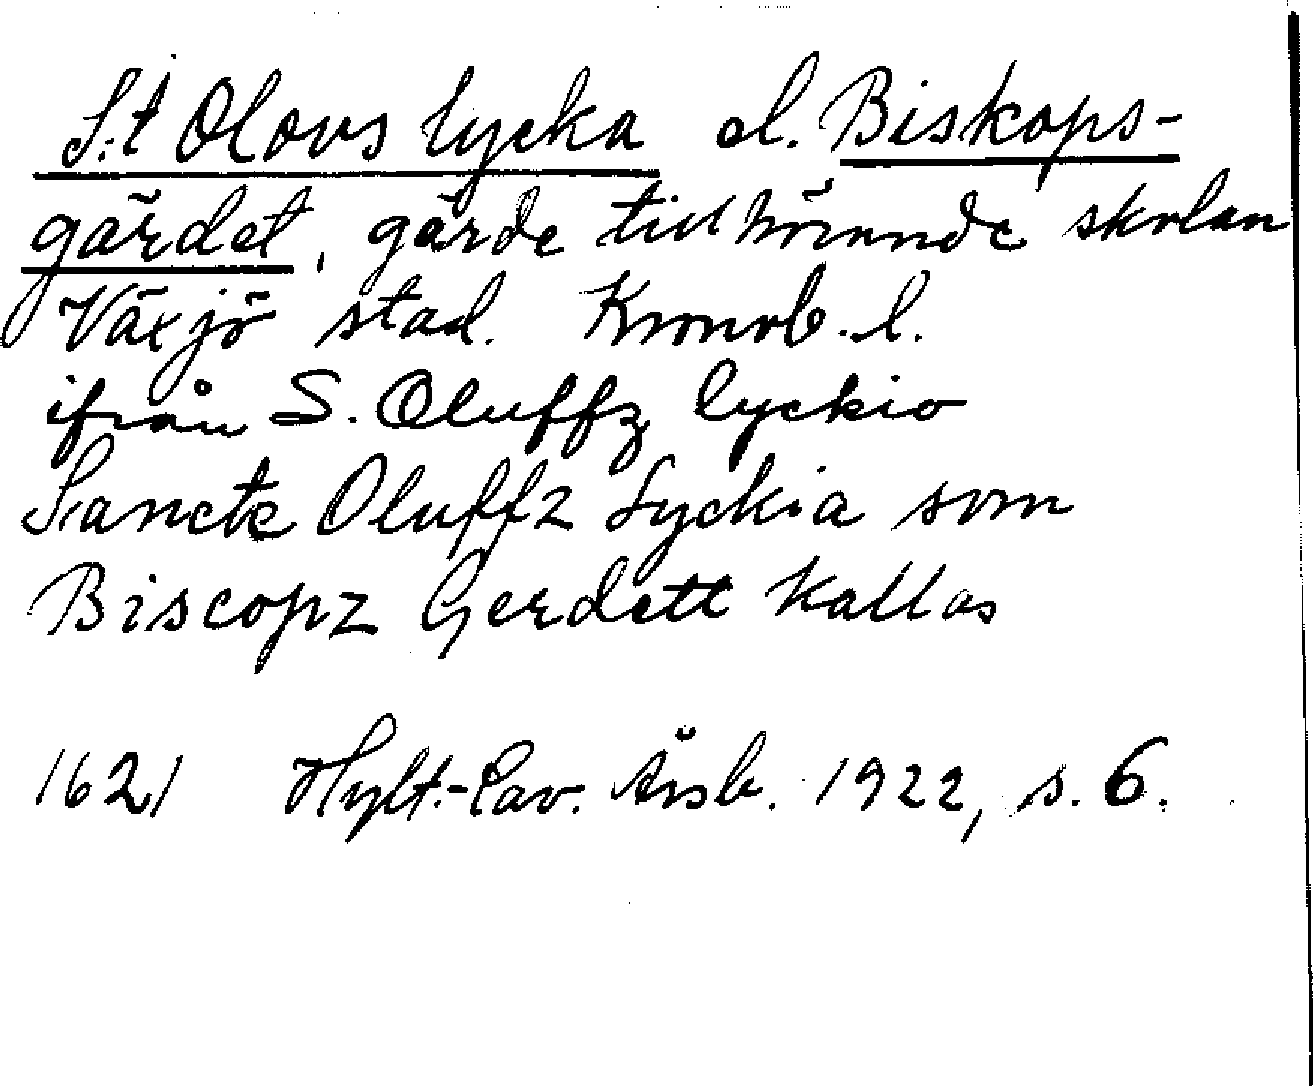 S:t Olovs lycka el. Biskops-
gärdet, gärde tillhörande skolan
Växjö stad. Kronob. l.
ifrån S. Oluffz lyckio
Sancte Oluffz Lyckia som
Biscopz Gerdett kallas
1621 Hylt.-Cav. Årsb. 1922, s. 6.